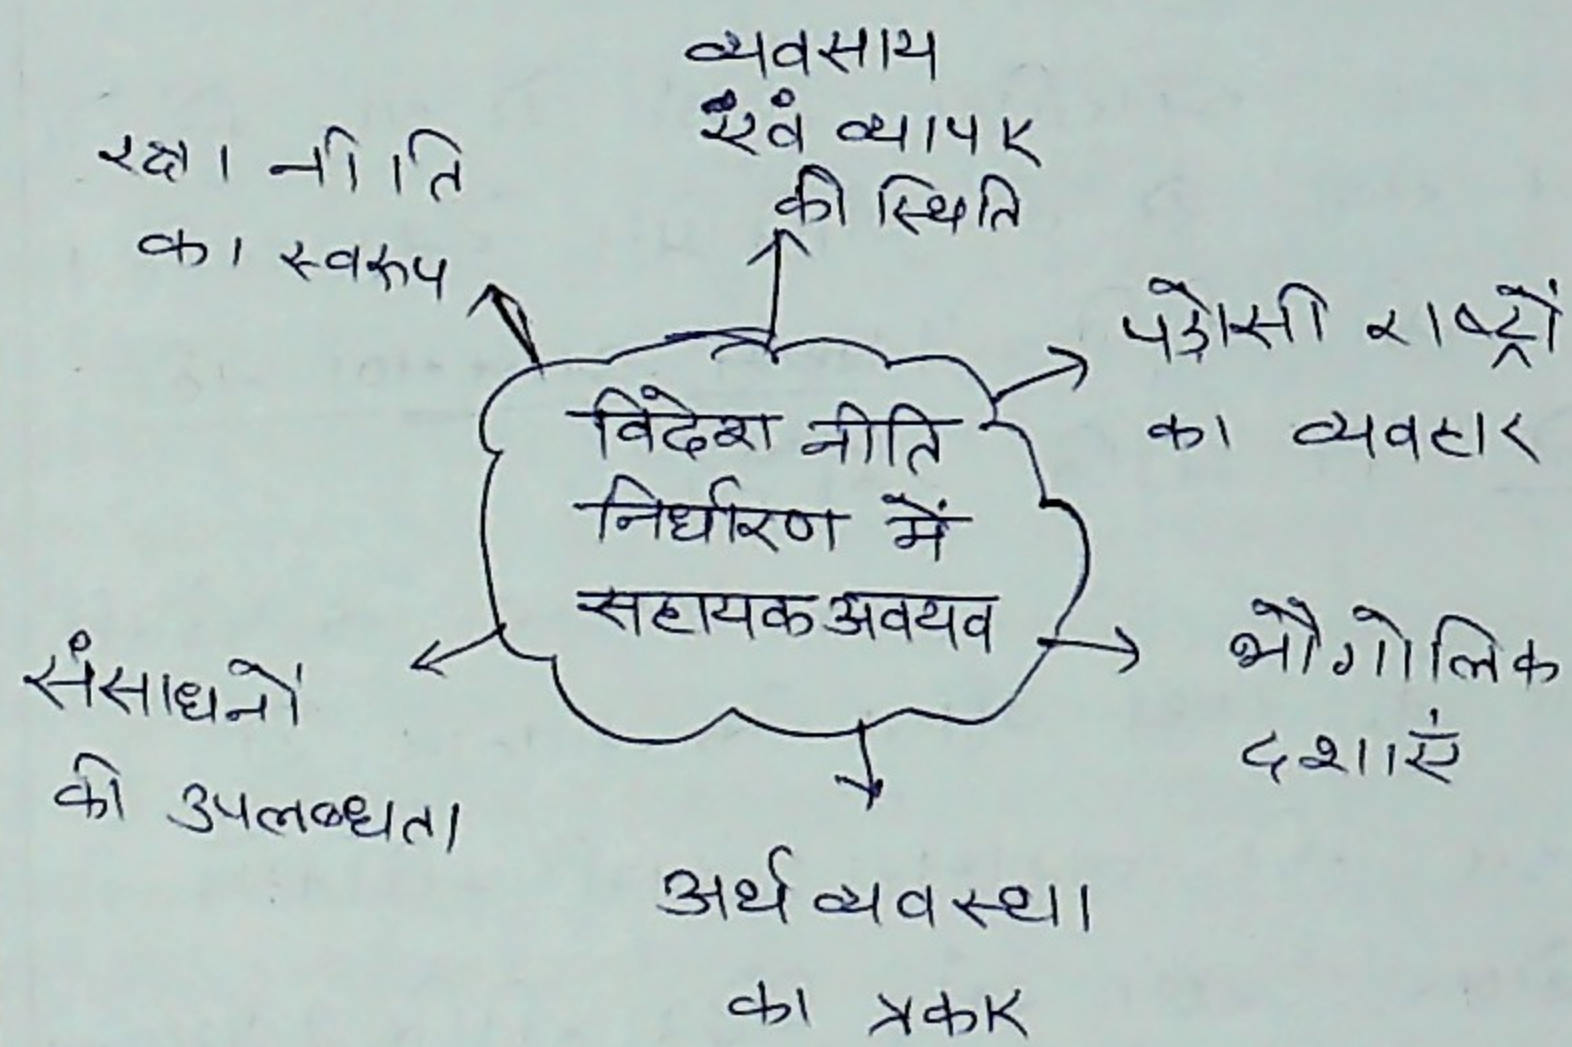 व्यवसाय
एवं व्यापार
की स्थिति
रक्षा नीति
का स्वरूप
पड़ोसी राष्ट्रों
का व्यवहार
विदेश नीति
निर्धारण में
सहायक अवयव
संसाधनों
की उपलब्धता
भौगोलिक
दशाएं
अर्थव्यवस्था
का प्रकार